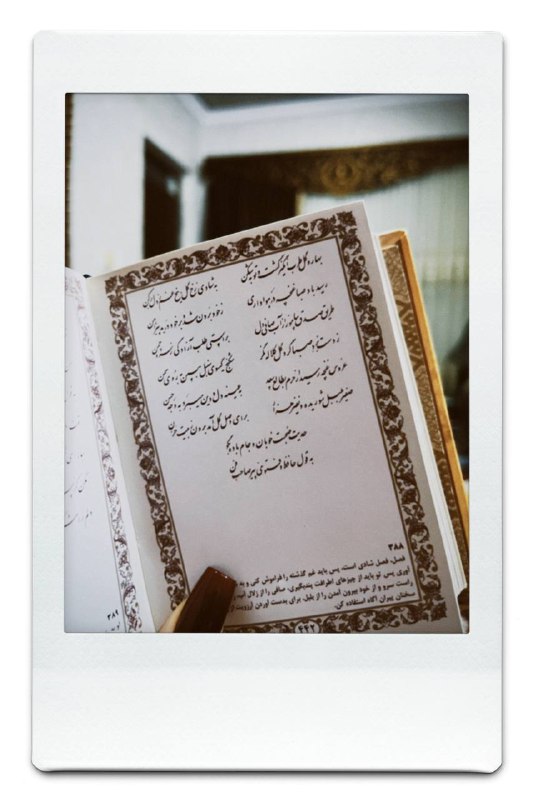 بهار و گل طرب انگیز گشت و توبه شکن به شادی رخ گل بیخ غم ز دل برکن
رسید باد صبا غنچه در هواداری ز خود برون شد و بر خود درید پیراهن
طریق صدق بیاموز از آب صافی دل براستی طلب آزادگی ز سرو چمن
ز دستبرد صبا گرد گل کلاله نگر شکنج گیسوی سنبل ببین به روی سمن
عروس غنچه رسید از حرم بطالع سعد به عینه دل و دین میبرد به وجه حسن
صفیر بلبل شوریده و نفیر هزار برای وصل گل آمد برون ز بیت حزن
حدیث صحبت خوبان و جام باده بگو
به قول حافظ و فتوی پیر صاحب فن
۳۸۸
فصل، فصل شادی است، پس باید غم گذشته را فراموش کنی و به
آوری پس تو باید از چیزهای اطرافت پندبگیری، صافی را از زلال آب،
راست سرو و از خود بیرون آمدن را از بلبل، برای بدست آوردن آرزویت از
سخنان پیران آگاه استفاده کن.
۴۴۲
۳۸۹